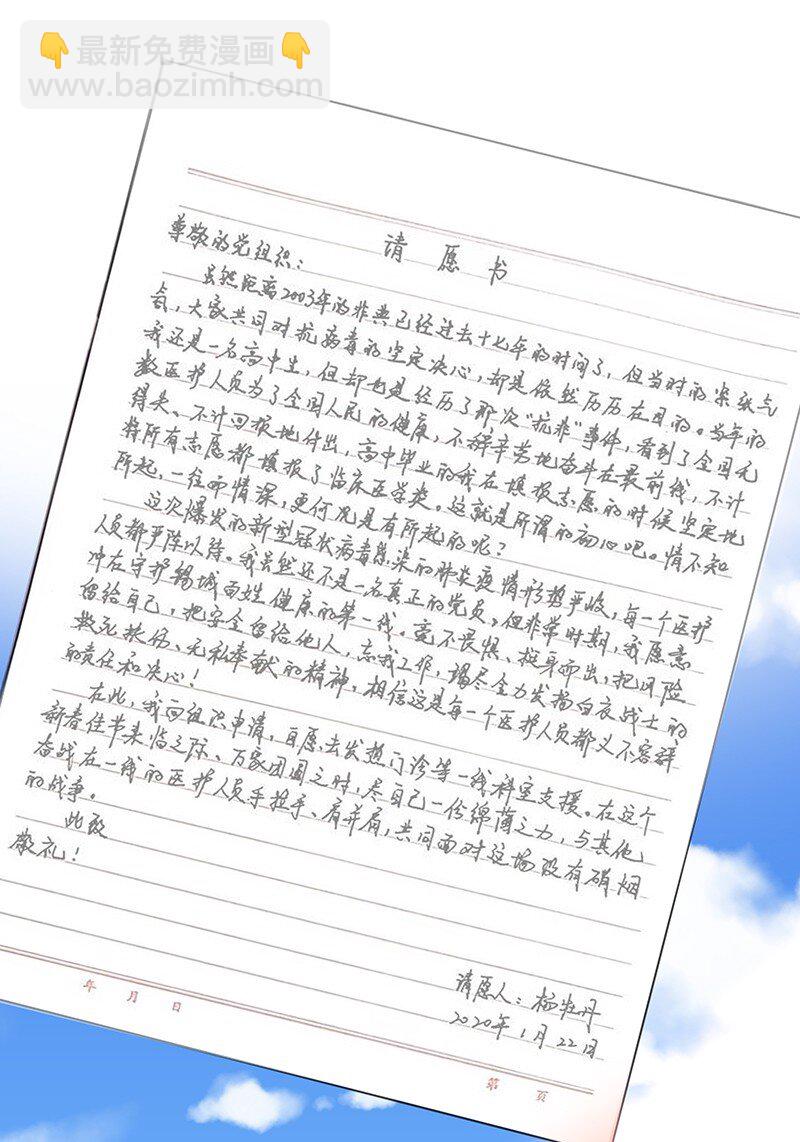 👇最新免费漫画👇
www.baozimh.com
请愿书
尊敬的党组织：
虽然距离2003年的非典已经过去十七年的时间了，但当时的紧张气
氛，大家共同对抗病毒的坚定决心，却是依然历历在目的。当年的
我还是一名高中生，但却也是经历了那次“抗非”事件，看到了全国无
数医护人员为了全国人民的健康，不辞辛劳地奋斗在最前线，不计
得失、不计回报地付出，高中毕业的我在填报志愿的时候坚定地
将所有志愿都填报了临床医学类。这就是所谓的初心吧。情不知
所起，一往而情深，更何况是有所起的呢？
这次爆发的新型冠状病毒感染的肺炎疫情形势严峻，每一个医护
人员都严阵以待。我虽然还不是一名真正的党员，但非常时期，我愿意
冲在守护锡城百姓健康的第一线。毫不畏惧、挺身而出，把风险
留给自己，把安全留给他人，忘我工作，竭尽全力发扬白衣战士的
救死扶伤、无私奉献的精神，相信这是每一个医护人员都义不容辞
的责任和决心！
在此，我向组织申请，自愿去发热门诊等一线科室支援。在这个
新春佳节来临之际、万家团圆之时，尽自己一份绵薄之力，与其他
奋战在一线的医护人员手拉手、肩并肩，共同面对这场没有硝烟
的战争。
此致
敬礼！
请愿人：杨牡丹
2020年1月22日
年 月 日
第 页